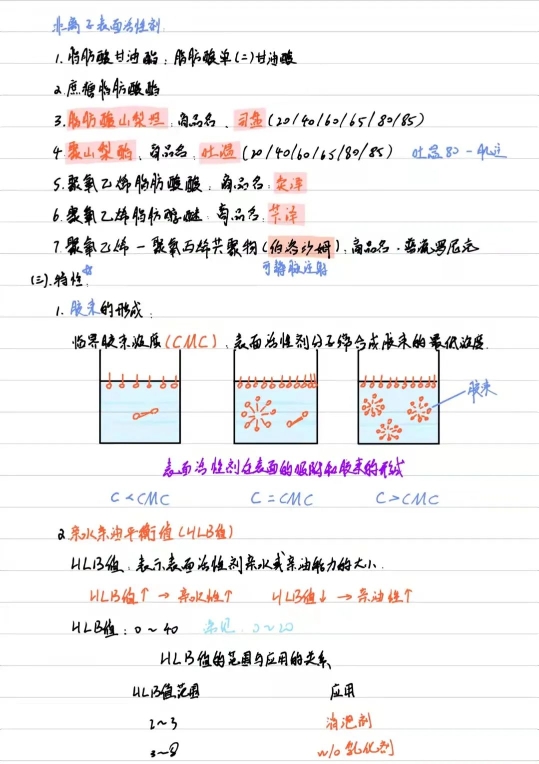 非离子表面活性剂
1.脂肪酸甘油酯:脂肪酸单(二)甘油酸
2.蔗糖脂肪酸酯
3.脂肪酸山梨坦:商品名、司盘(20/40/60/65/80/85)
4.聚山梨酯、商品名:吐温(20/40/60/65/80/85) 吐温80-乳注
5.聚氧乙烯脂肪酸酯:商品名:卖泽
6.聚氧乙烯脂肪醇醚:商品名:苄泽
7.聚氧乙烯-聚氧丙烯共聚物(伯洛沙姆):商品名·普流罗尼克
可静脉注射
(三).特性:
1.胶束的形成:
临界胶束浓度(CMC):表面活性剂分子缔合成胶束的最低浓度.
胶束
表面活性剂在表面的吸附和胶束的形成
C<CMC C=CMC C>CMC
2.亲水亲油平衡值(HLB值)
HLB值:表示表面活性剂亲水或亲油能力的大小.
HLB值↑→亲水性↑ HLB值↓→亲油性↑
HLB值:0~40 常见:0~20
HLB值的范围与应用的关系
HLB值范围 应用
2~3 消泡剂
3~8 w/o乳化剂